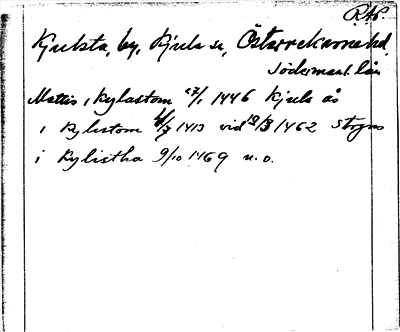 R.A.P.
Kjulsta, by, Kjula sn, Österrekarne hd,
Södermanl. län
Mattis i Kylastom 27/1 1446 Kjula ås
i Kylistom 1413 vid 18/8 1462
i Kylistha 9/10 1469 u. o.